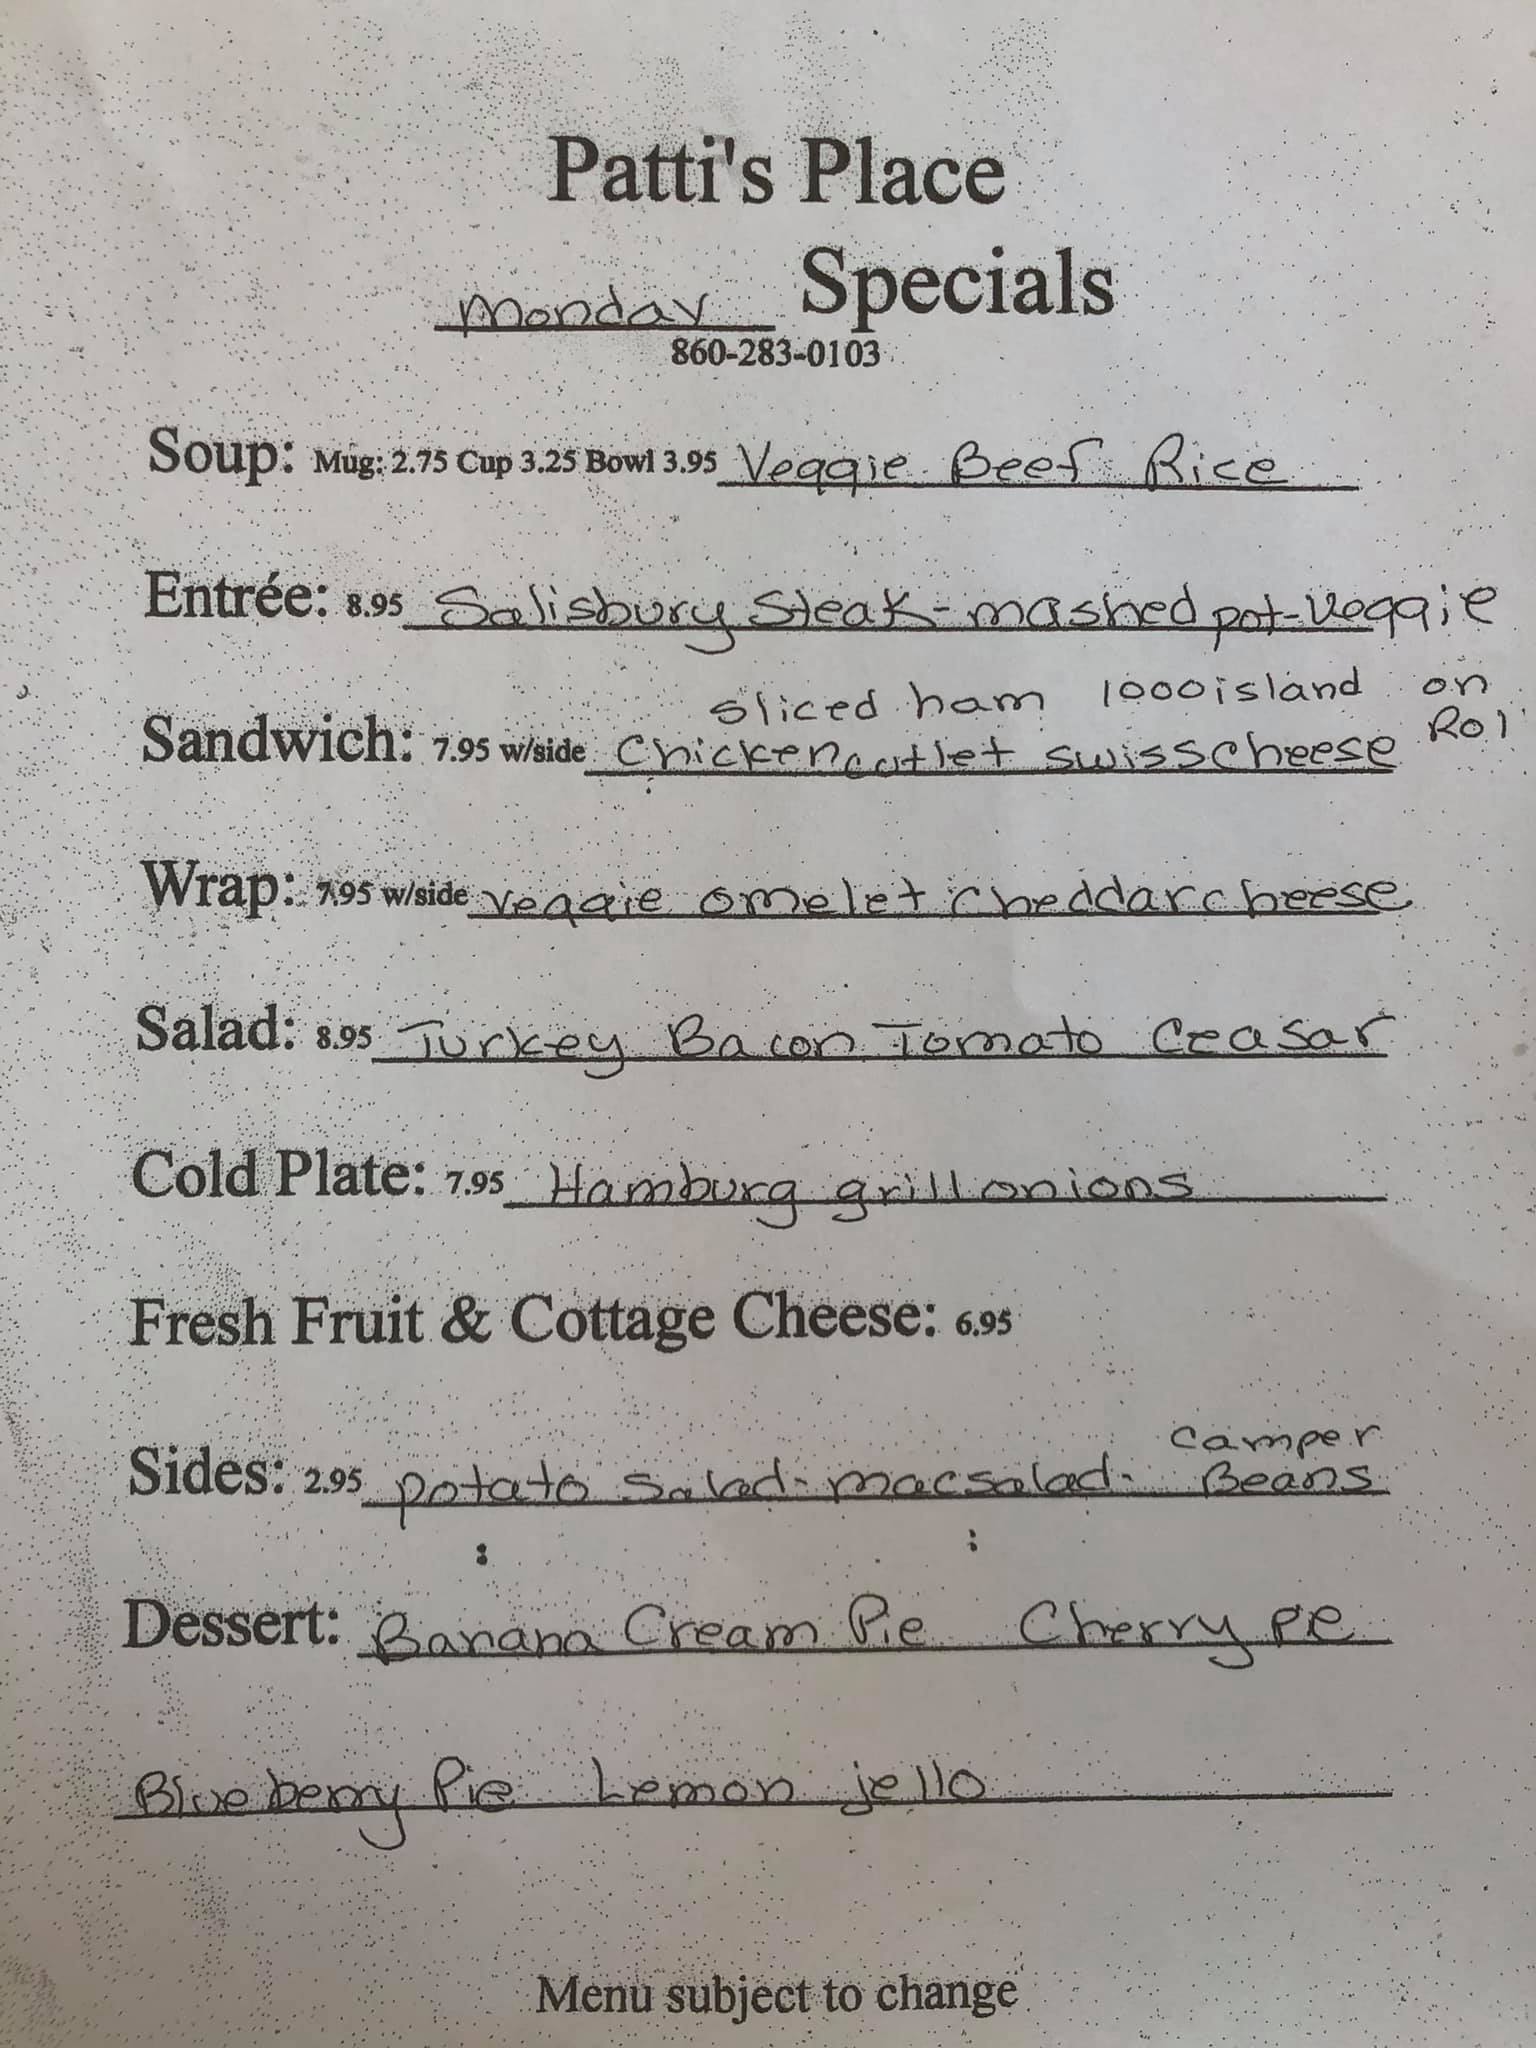 Patti's Place
Monday Specials
860-283-0103
Soup: Mug: 2.75 Cup 3.25 Bowl 3.95 Veggie Beef Rice
Entrée: 8.95 Salisbury Steak - mashed pot - Veggie
sliced ham 1000 island on
Sandwich: 7.95 w/side Chicken cutlet swiss cheese Rol
Wrap: 7.95 w/side Veggie omelet cheddar cheese
Salad: 8.95 Turkey Bacon Tomato Ceasar
Cold Plate: 7.95 Hamburg grill onions
Fresh Fruit & Cottage Cheese: 6.95
camper
Sides: 2.95 potato salad - mac salad - Beans
Dessert: Banana Cream Pie Cherry pie
Blueberry Pie Lemon jello
Menu subject to change